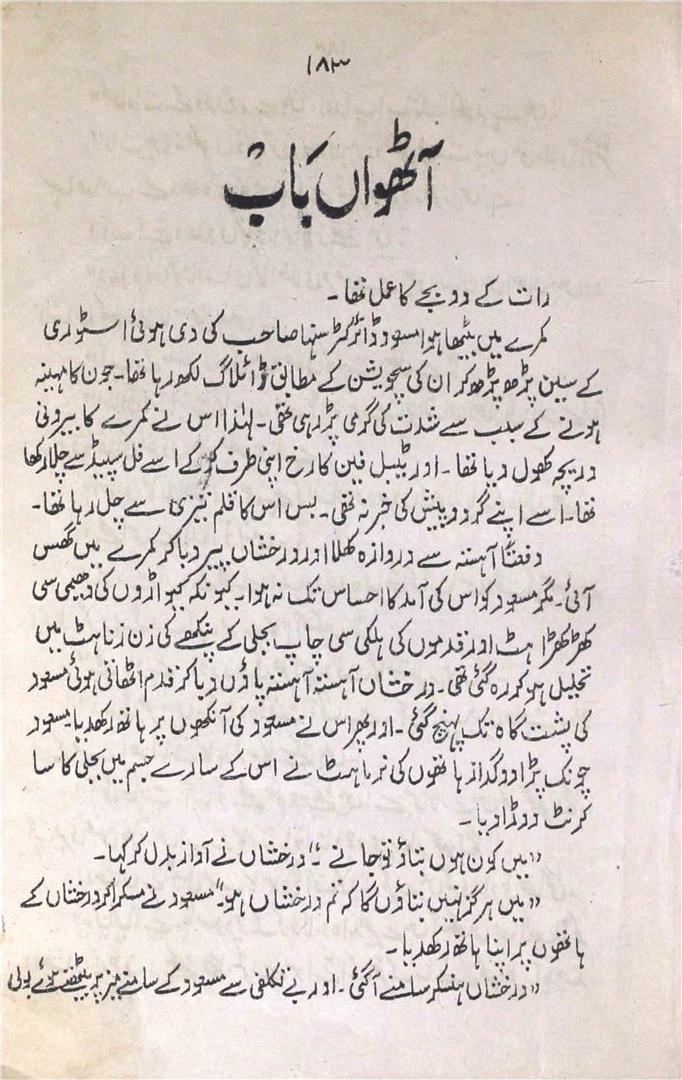 ۱۸۳
آٹھواں باب
رات کے دو بجے کا عمل تھا۔
کمرے میں بیٹھا ہوا مسعود ڈائرکٹر سنہا صاحب کی دی ہوئی اسٹوری
کے سین پڑھ پڑھ کر ان کی سچویشن کے مطابق ڈائلاگ لکھ رہا تھا۔ جون کا مہینہ
ہونے کے سبب سے شدت کی گرمی پڑ رہی تھی۔ لہٰذا اس نے کمرے کا بیرونی
دریچہ کھول دیا تھا۔ اور ٹیبل فین کا رخ اپنی طرف کر کے اسے فل سپیڈ سے چلا رکھا
تھا۔ اسے اپنے گرد و پیش کی خبر نہ تھی۔ بس اس کا قلم تیزی سے چل رہا تھا۔
دفعتاً آہستہ سے دروازہ کھلا اور درخشاں پیر دبا کر کمرے میں گھس
آئی۔ مگر مسعود کو اس کی آمد کا احساس تک نہ ہوا۔ کیونکہ کیواڑوں کی دھیمی سی
کھڑکھڑاہٹ اور قدموں کی ہلکی سی چاپ بجلی کے پنکھے کی زن زناہٹ میں
تحلیل ہو کر رہ گئی تھی۔ درخشاں آہستہ آہستہ پاؤں دبا کر قدم اٹھاتی ہوئی مسعود
کی پشت گاہ تک پہنچ گئی۔ اور پھر اس نے مسعود کی آنکھوں پر ہاتھ رکھدیا۔ مسعود
چونک پڑا و گداز ہاتھوں کی نرماہٹ نے اس کے سارے جسم میں بجلی کا سا
کرنٹ دوڑا دیا۔
”میں کون ہوں بتاؤ تو جانے؟“ درخشاں نے آواز بدل کر کہا۔
”میں ہرگز نہیں بتاؤں گا کہ تم درخشاں ہو۔“ مسعود نے مسکرا کر درخشاں کے
ہاتھوں پر اپنا ہاتھ رکھدیا۔
”درخشاں ہنسکر سامنے آ گئی۔ اور بے تکلفی سے مسعود کے سامنے میز پر بیٹھتے ہوئے بولی